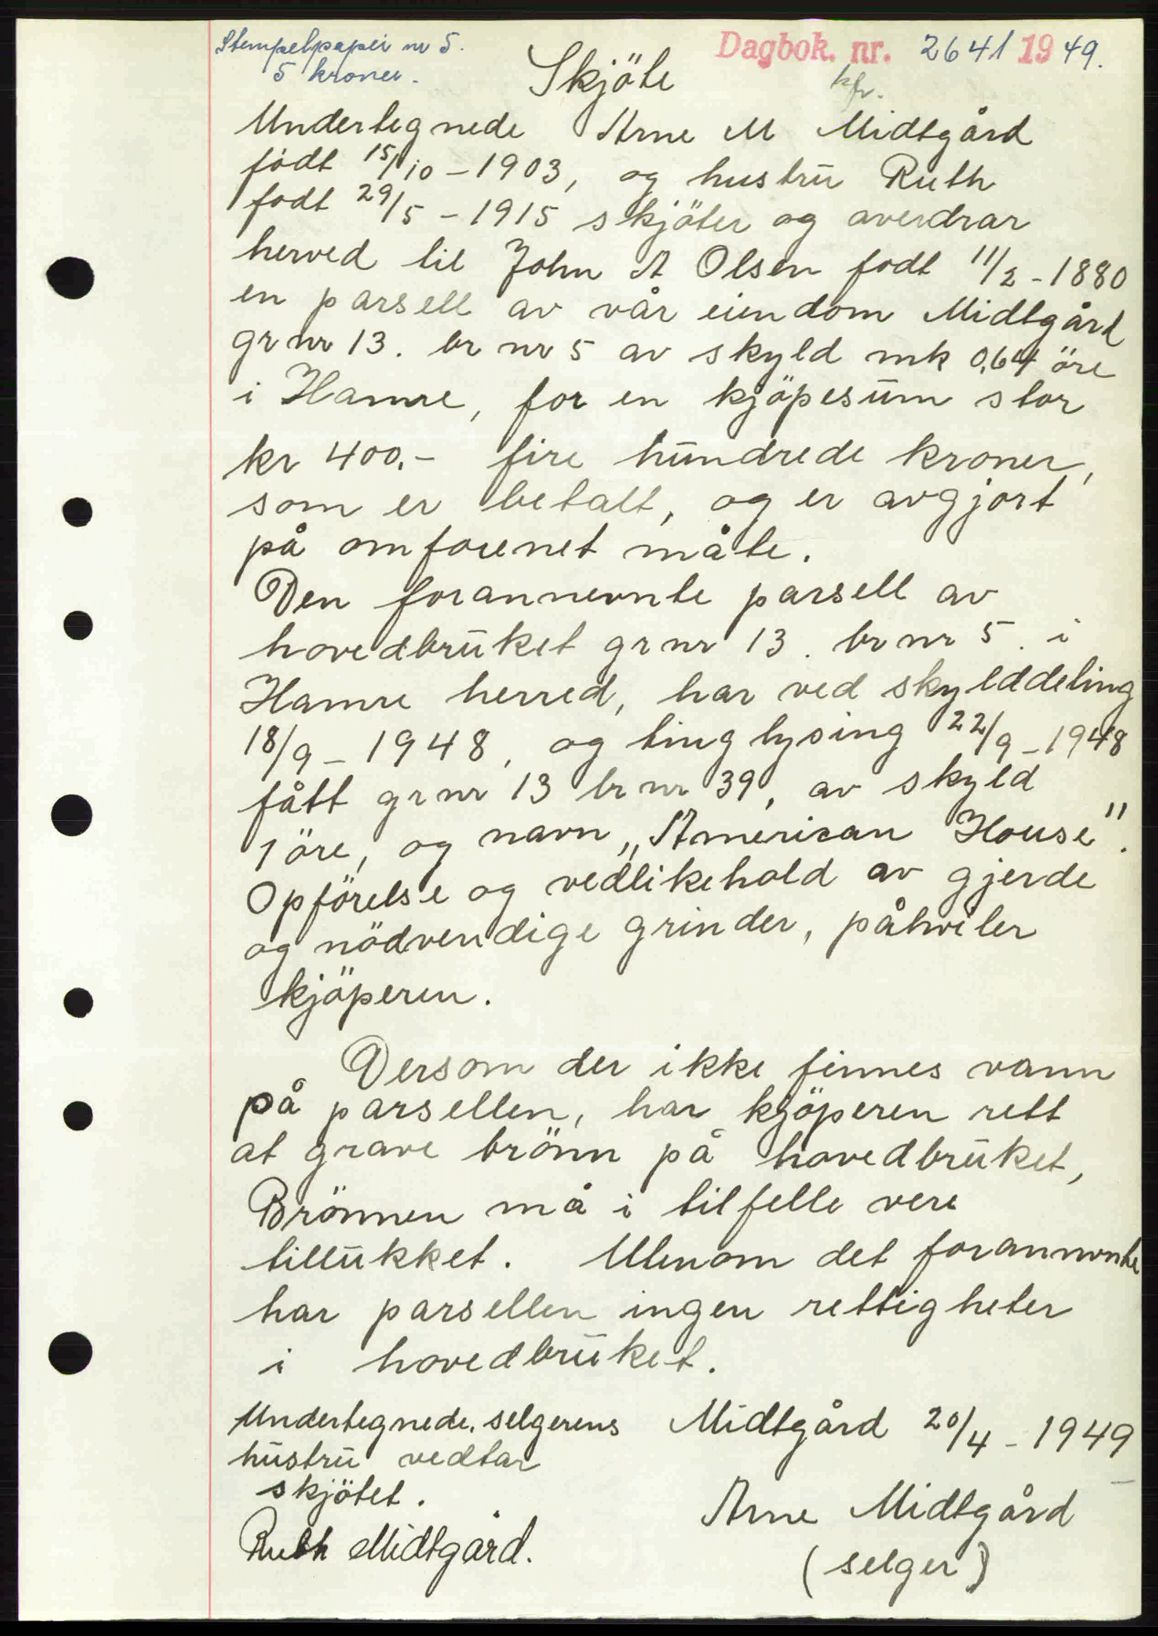 Stempelpapir nr 5.
5 kroner.
Dagbok. nr. 2641 1949.
Skjöte
kfr.
Undertegnede Arne M Midtgård
födt 15/10 - 1903, og hustru Ruth
födt 29/5 - 1915 skjöter og overdrar
herved til John A Olsen födt 11/2 - 1880
en parsell av vår eiendom Midtgård
grnr 13. br nr 5 av skyld mk 0,64 öre
i Hamre, for en kjöpesum stor
kr 400.- fire hundrede kroner,
som er betalt, og er avgjort
på omforenet måte.
Den forannevnte parsell av
hovedbruket grnr 13. br nr 5. i
Hamre herred, har ved skylddeling
18/9 - 1948, og tinglysing 22/9 - 1948
fått grnr 13 br nr 39, av skyld
1 öre, og navn „American House".
Opförelse og vedlikehold av gjerde
og nödvendige grinder, påhviler
kjöperen.
Dersom der ikke finnes vann
på parsellen, har kjöperen rett
at grave brönn på hovedbruket,
Brönnen må i tilfelle vere
tillukket. Utenom det forannevnte
har parsellen ingen rettigheter
i hovedbruket.
Undertegnede, selgerens
hustru vedtar
skjötet.
Ruth Midtgård.
Midtgård 20/4 - 1949
Arne Midtgård
(selger)